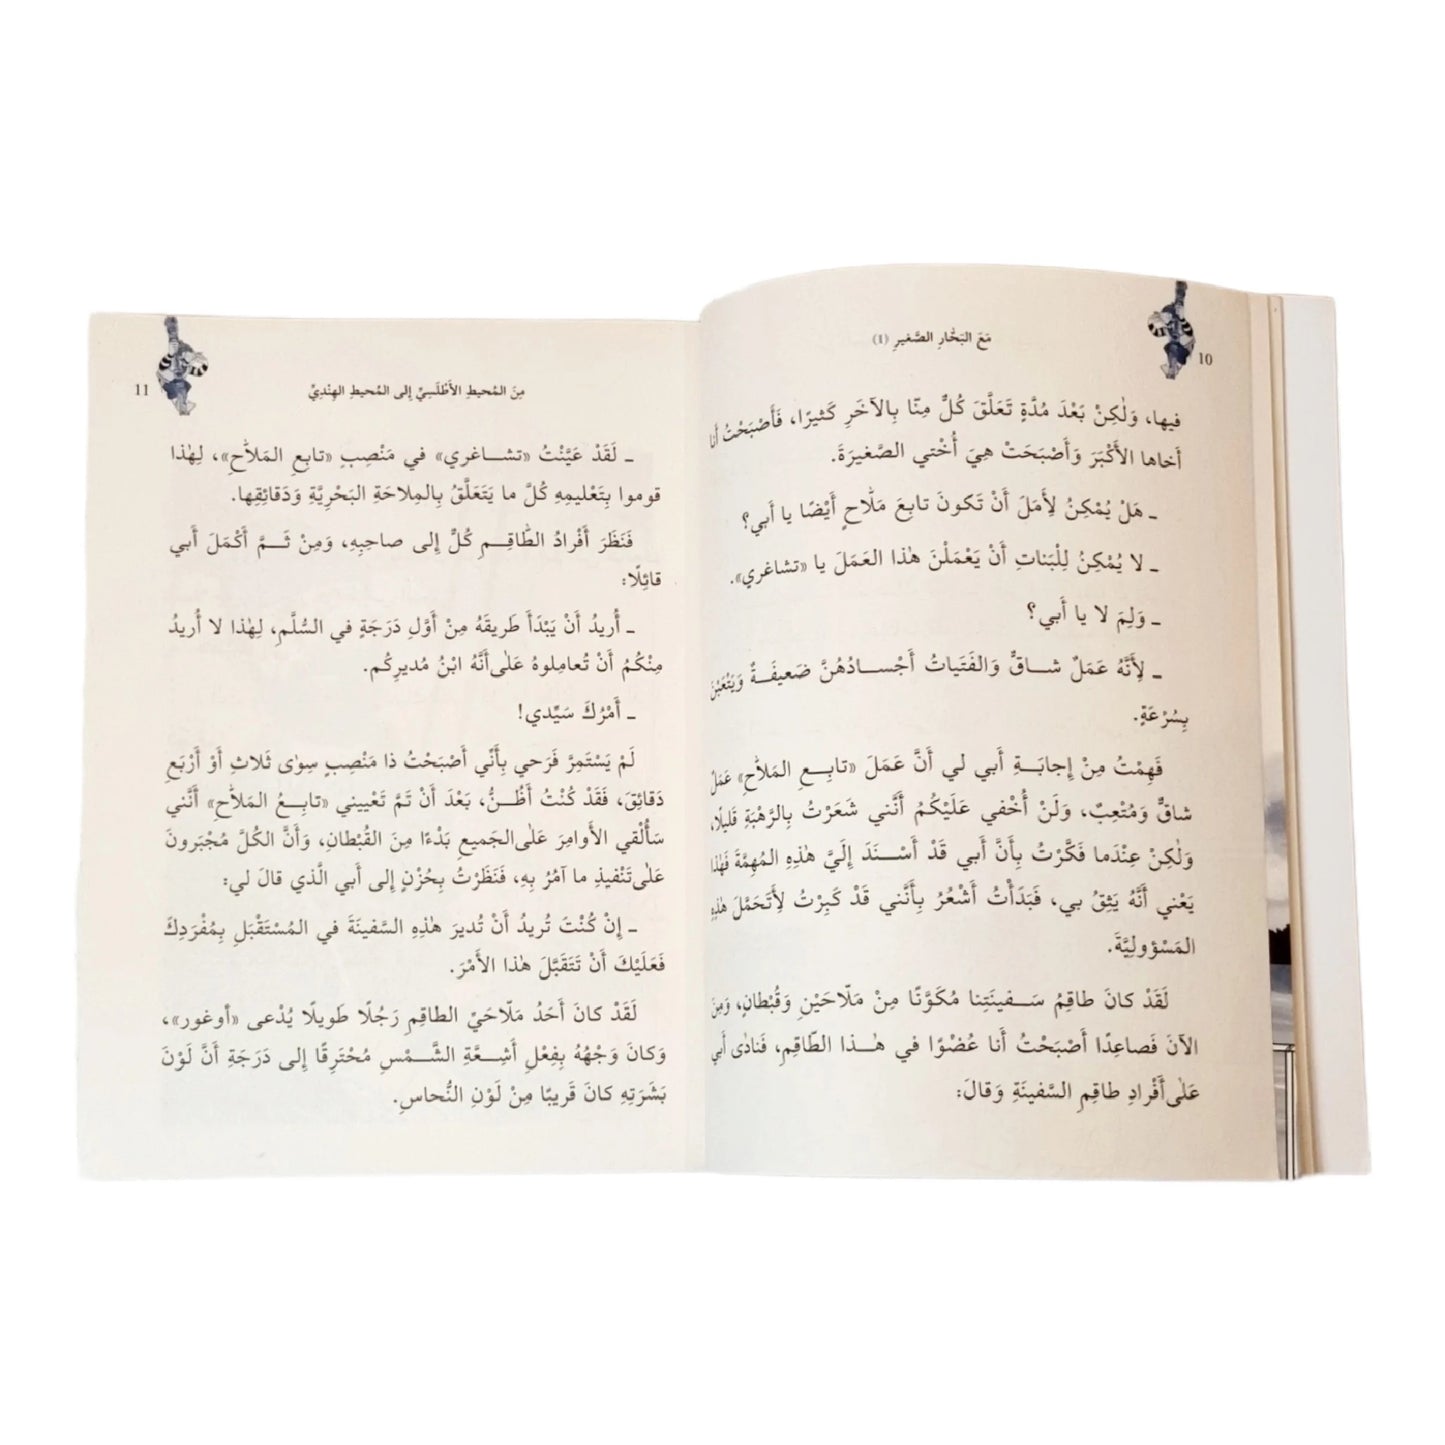 10
مَعَ البَحّارِ الصَّغيرِ (1)
فيها، وَلٰكِنْ بَعْدَ مُدَّةٍ تَعَلَّقَ كُلٌّ مِنّا بِالآخَرِ كَثيرًا، فَأَصْبَحْتُ أَنا
أَخاها الأَكْبَرَ وَأَصْبَحَتْ هِيَ أُخْتي الصَّغيرَةَ.
ـ هَلْ يُمْكِنُ لِأَمَلَ أَنْ تَكونَ تابِعَ مَلّاحٍ أَيْضًا يا أَبي؟
ـ لا يُمْكِنُ لِلْبَناتِ أَنْ يَعْمَلْنَ هٰذا العَمَلَ يا «تشاغري».
ـ وَلِمَ لا يا أَبي؟
ـ لِأَنَّهُ عَمَلٌ شاقٌّ وَالفَتَياتُ أَجْسادُهُنَّ ضَعيفَةٌ وَيَتْعَبْنَ
بِسُرْعَةٍ.
فَهِمْتُ مِنْ إِجابَةِ أَبي لي أَنَّ عَمَلَ «تابِعِ المَلاّحِ» عَمَلٌ
شاقٌّ وَمُتْعِبٌ، وَلَنْ أُخْفي عَلَيْكُمُ أَنَّني شَعَرْتُ بِالرَّهْبَةِ قَليلًا،
وَلٰكِنْ عِنْدَما فَكَّرْتُ بِأَنَّ أَبي قَدْ أَسْنَدَ إِلَيَّ هٰذِهِ المُهِمَّةَ فَهٰذا
يَعْني أَنَّهُ يَثِقُ بي، فَبَدَأْتُ أَشْعُرُ بِأَنَّني قَدْ كَبِرْتُ لِأَتَحَمْلَ هٰذِهِ
المَسْؤوليَّةَ.
لَقَدْ كانَ طاقِمُ سَفينَتِنا مُكَوَّنًا مِنْ مَلّاحَيْنِ وَقُبْطانٍ، وَمِنَ
الآنَ فَصاعِدًا أَصْبَحْتُ أَنا عُضْوًا في هٰذا الطّاقِمِ، فَنادٰى أَبي
عَلٰى أَفْرادِ طاقِمِ السَّفينَةِ وَقالَ:
11
مِنَ المُحيطِ الأَطْلَسِيِّ إِلى المُحيطِ الهِنْدِيِّ
ـ لَقَدْ عَيَّنْتُ «تشاغري» في مَنْصِبِ «تابِعِ المَلاّحِ»، لِهٰذا
قوموا بِتَعْليمِهِ كُلَّ ما يَتَعَلَّقُ بِالمِلاحَةِ البَحْرِيَّةِ وَدَقائِقِها.
فَنَظَرَ أَفْرادُ الطّاقِمِ كُلٌّ إِلى صاحِبِهِ، وَمِنْ ثَمَّ أَكْمَلَ أَبي
قائِلًا:
ـ أُريدُ أَنْ يَبْدَأَ طَريقَهُ مِنْ أَوَّلِ دَرَجَةٍ في السُّلَّمِ، لِهٰذا لا أُريدُ
مِنْكُمُ أَنْ تُعامِلوهُ عَلٰى أَنَّهُ ابْنُ مُديرِكُم.
ـ أَمْرُكَ سَيِّدي!
لَمْ يَسْتَمِرَّ فَرَحي بِأَنّي أَصْبَحْتُ ذا مَنْصِبٍ سِوٰى ثَلاثِ أَوْ أَرْبَعِ
دَقائِقَ، فَقَدْ كُنْتُ أَظُنُّ، بَعْدَ أَنْ تَمَّ تَعْييني «تابِعُ المَلاّحِ» أَنَّني
سَأُلْقي الأَوامِرَ عَلٰى الجَميعِ بَدْءًا مِنَ القُبْطانِ، وَأَنَّ الكُلَّ مُجْبَرونَ
عَلٰى تَنْفيذِ ما آمُرُ بِهِ، فَنَظَرْتُ بِحُزْنٍ إِلى أَبي الَّذي قالَ لي:
ـ إِنْ كُنْتَ تُريدُ أَنْ تُديرَ هٰذِهِ السَّفينَةَ في المُسْتَقْبَلِ بِمُفْرَدِكَ
فَعَلَيْكَ أَنْ تَتَقَبَّلَ هٰذا الأَمْرَ.
لَقَدْ كانَ أَحَدُ مَلّاحَيِّ الطاقِمِ رَجُلًا طَويلًا يُدْعى «أوغور»،
وَكانَ وَجْهُهُ بِفِعْلِ أَشِعَّةِ الشَّمْسِ مُحْتَرِقًا إِلى دَرَجَةِ أَنَّ لَوْنَ
بَشَرَتِهِ كانَ قَريبًا مِنْ لَوْنِ النُّحاسِ.